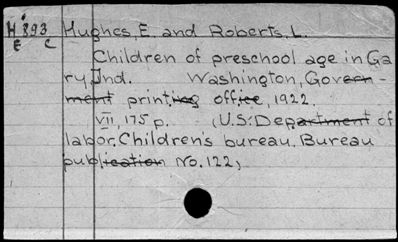 H893 Hughes, E. and Roberts, L.
E C
Children of preschool age in Ga
ry, Ind. Washington, Govern-
ment printing office, 1922.
VII, 175 p. (U.S. Department of
labor. Children's bureau. Bureau
publication No. 122)